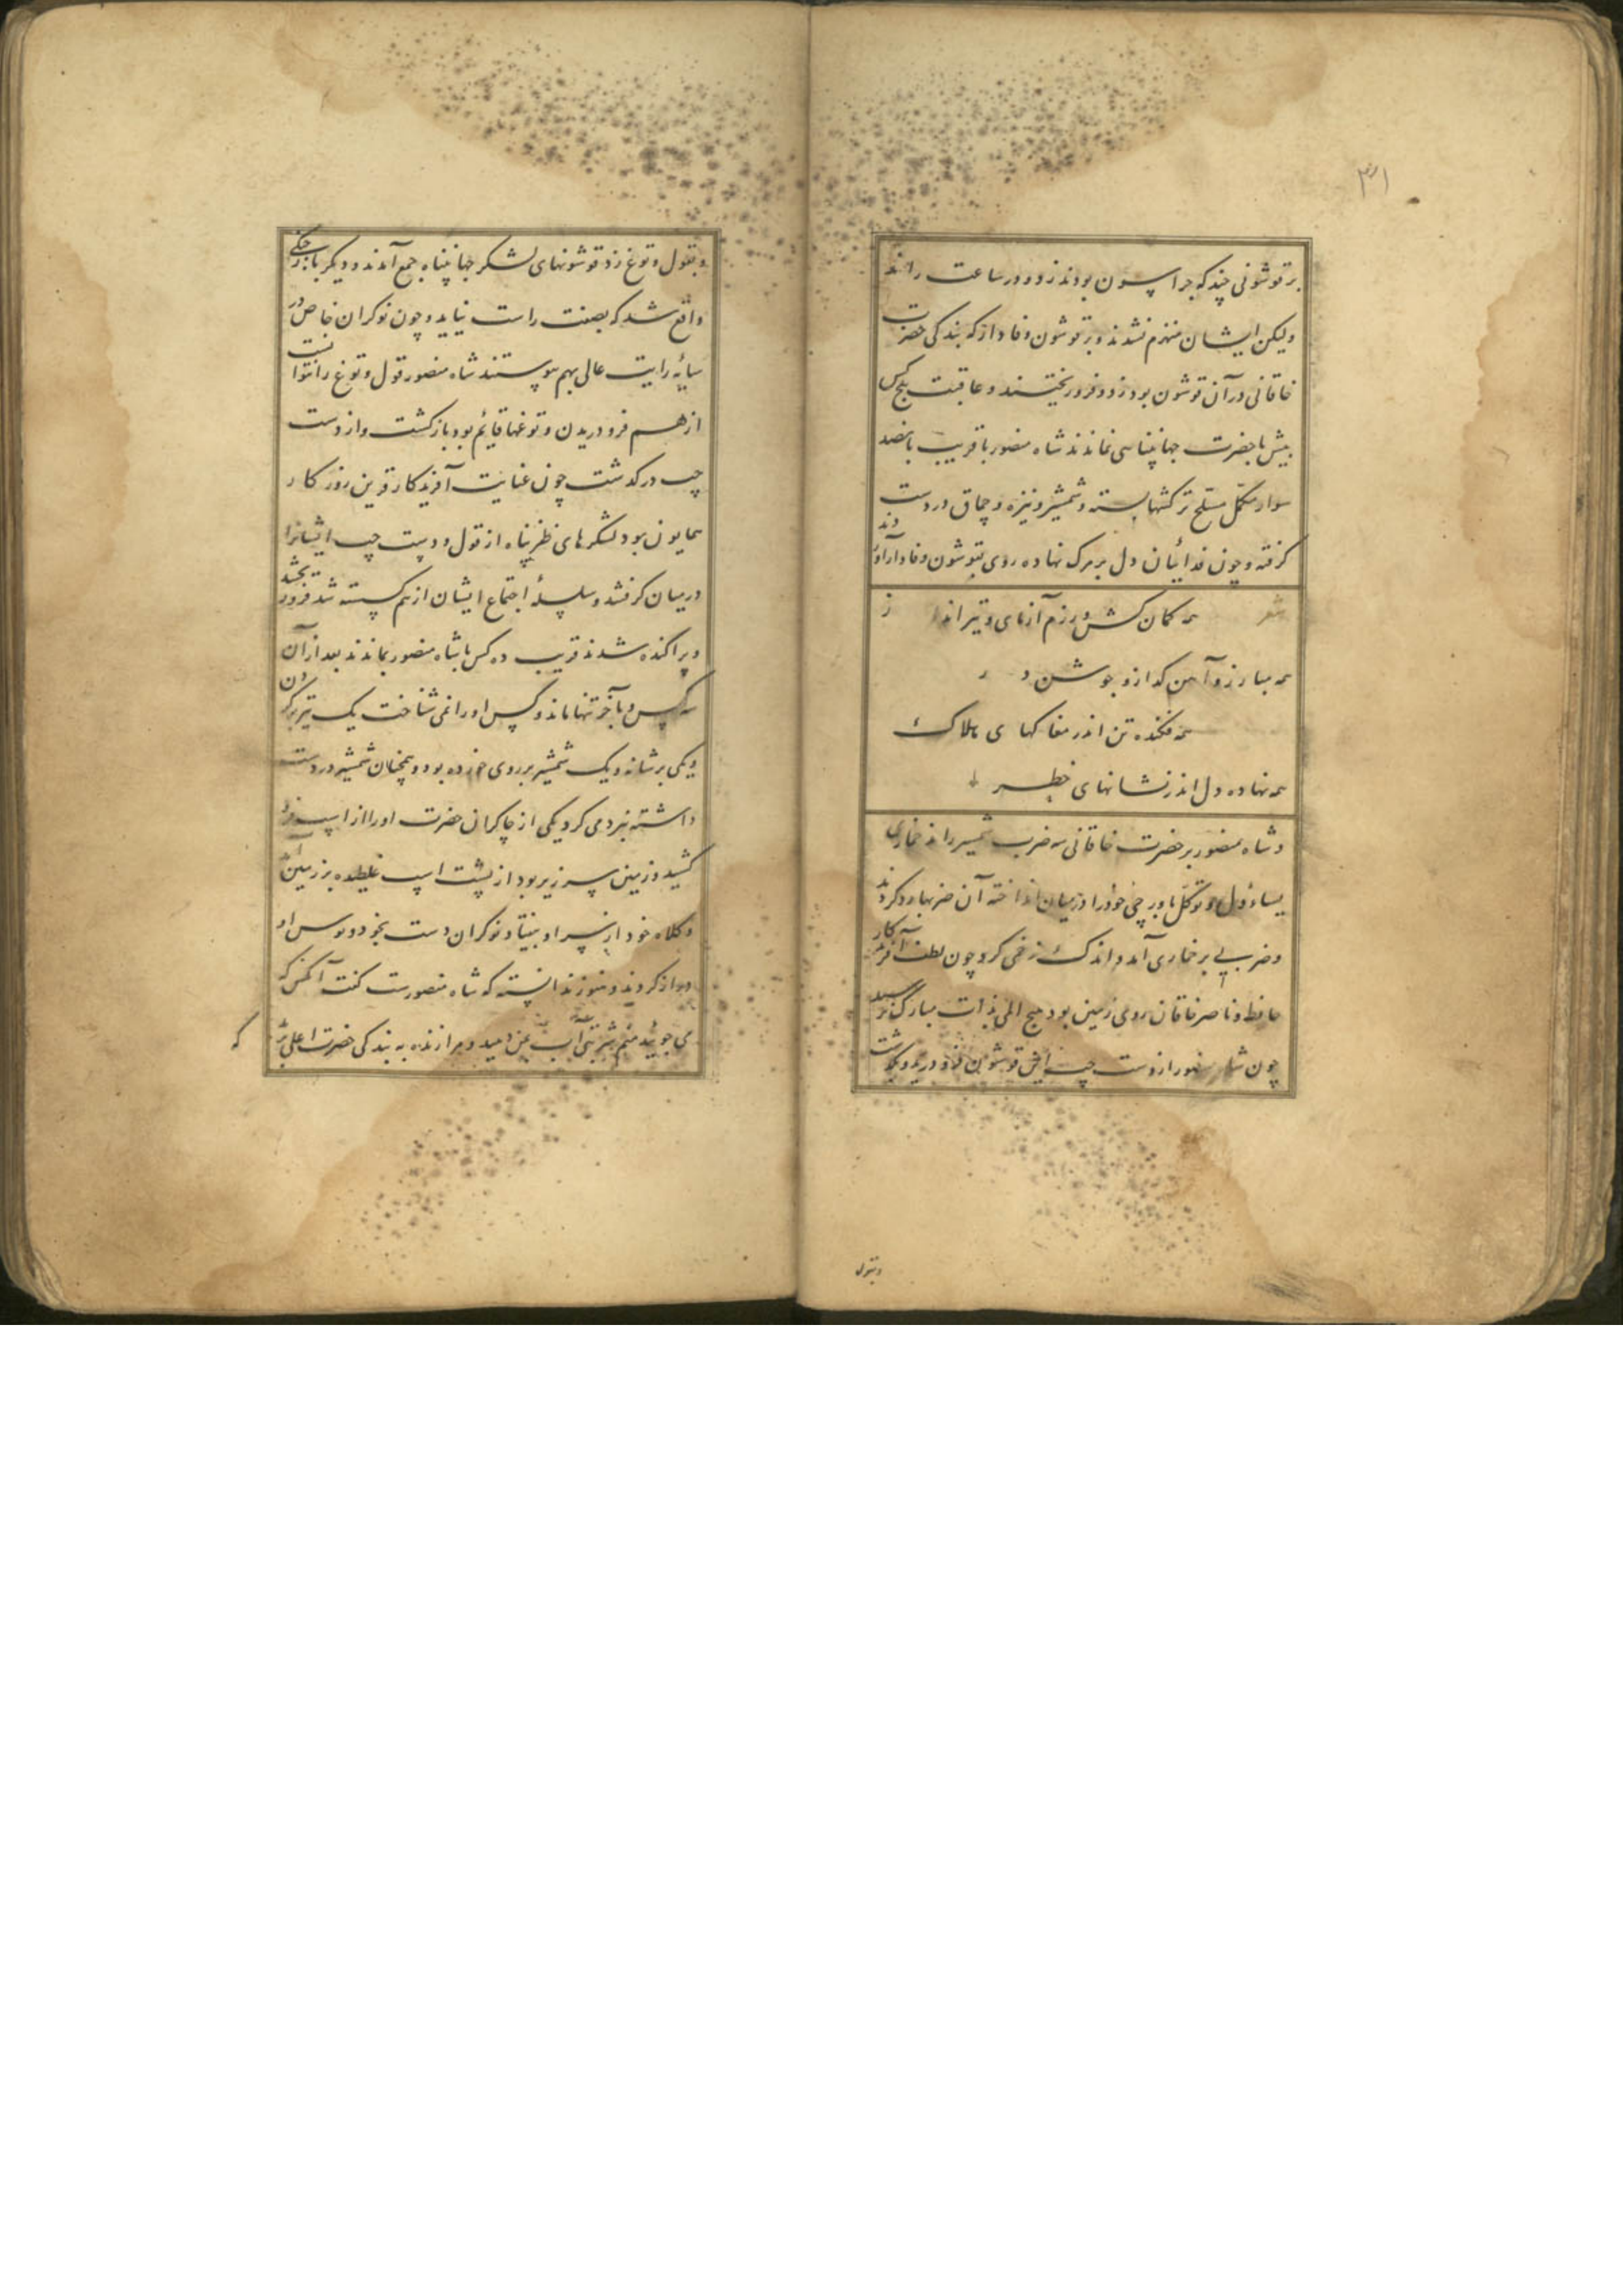 ۳۱
بر قوشونی چند که جرا سون بودند زود در ساعت راند
ولیکن ایشان منهزم نشدند و بر قوشون وفادار که بندکی حضرت
خاقانی در آن قوشون بود زد و فرو ریختند و عاقبت پنج کس
بیش با حضرت جهانپناهی نماندند شاه منصور با قریب پانصد
سوار مکمّل مسلّح ترکشها بسته و شمشیر و نیزه و چماق در دست
کرفته و چون فدائیان دل بر مرک نهاده روی بقوشون وفادار آوردند
شعر همه کمان کش و رزم آزمای و تیر انداز
همه مبارز و آهن کداز و جوشن در
همه فکنده تن اندر مغاکهای هلاک
همه نهاده دل اندر نشانهای خطر
و شاه منصور بر حضرت خاقانی سه ضرب شمشیر راند خماری
یساؤل و توکل باورچی خود را در میان انداخته آن ضربها رد کردند
و ضربی بر خماری آمد و اندک زخمی کرد چون لطف آفریدکار
حافظ و ناصر خاقان روی زمین بود هیچ المی بذات مبارک نرسید
چون شاه منصور از دست چپ این قوشون فرو درید و بکذشت
وبقول
و بقول و توغ زد قوشونهای لشکر جهانپناه جمع آمدند و دیکر بار جنکی
واقع شد که بصفت راست نیاید و چون نوکران خاص در
سایهٔ رایت عالی بهم پیوستند شاه منصور قول و توغ را نتوانست
از هم فرو دریدن و توغها قایم بود باز کشت و از دست
چپ در کذشت چون عنایت آفریدکار قرین روزکار
همایون بود لشکرهای ظفر پناه از قول و دست چپ ایشانرا
در میان کرفتند و سلسلهٔ اجتماع ایشان از هم کسسته شد فرو ریختند
و پراکنده شدند قریب ده کس با شاه منصور بماندند بعد از آن
سه کس و بآخر تنها ماند و کس او را نمی شناخت یک تیر بر کردن
و یکی بر شانه و یک شمشیر بر روی خورده بود و همچنان شمشیر در دست
داشته نبرد می کرد یکی از چاکران حضرت او را از اسپ فرو
کشید و زمین سرزیر بود از پشت اسپ غلطیده بر زمین
و کلاه خود از سر او بیفتاد نوکران دست بخود و بوس او
دراز کردند و هنوز ندانسته که شاه منصورست کفت آنکس که
می جویید منم شربتی آب بمن دهید و مرا زنده به بندکی حضرت اعلی
که